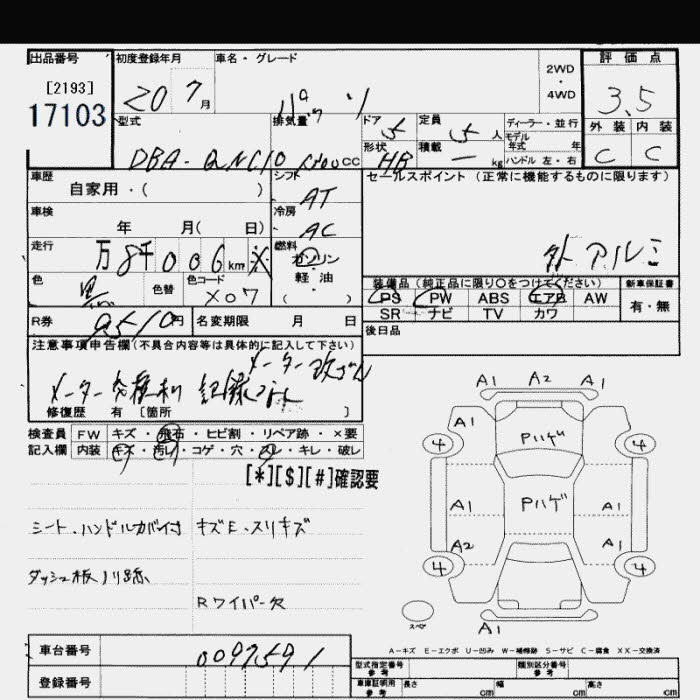 出品番号
[2193]
17103
初度登録年月
20 7月
車名・グレード
パッソ
2WD
・
4WD
評価点
3.5
外装 内装
C C
型式
DBA-QNC10
排気量
cc
ドア
5
定員
5人
ディーラー・並行
モデル
年式 年
形状
HB
積載
— kg
ハンドル 左・右
車歴
自家用・( )
シフト
AT
セールスポイント (正常に機能するものに限ります)
外アルミ
車検
年 月( 日)
冷房
AC
走行
万8千006km
※
燃料
ガソリン
軽・油
( )
色
黒
色替
色コード
X07
装備品 (純正品に限り○をつけてください)
PS PW ABS エアB AW
SR ナビ TV カワ
新車保証書
有・無
R券
9510円
名変期限 月 日
後日品
注意事項申告欄(不具合内容等は具体的に記入して下さい)
メーター改ざん
メーター交換有 記録なし
修復歴 有 [箇所 ]
検査員
記入欄
FW キズ・飛石・ヒビ割・リペア跡・×要
内装 キズ・汚レ・コゲ・穴・スレ・キレ・破レ
[*][$][#]確認要
シート、ハンドルカバー付
キズE、スリキズ
ダッシュ板ノリ跡
Rワイパー欠
A1 A2 A1
A1 A1
4 Pハゲ 4
A1 Pハゲ A1
A2 A1
4 4
スペア
A1
A-キズ E-エクボ U-凹み W-補修跡 S-サビ C-腐食 XX-交換済
車台番号
0097591
登録番号
型式指定番号
参考
類別区分番号
参考
車庫証明用
参考
長さ cm
幅 cm
高さ cm